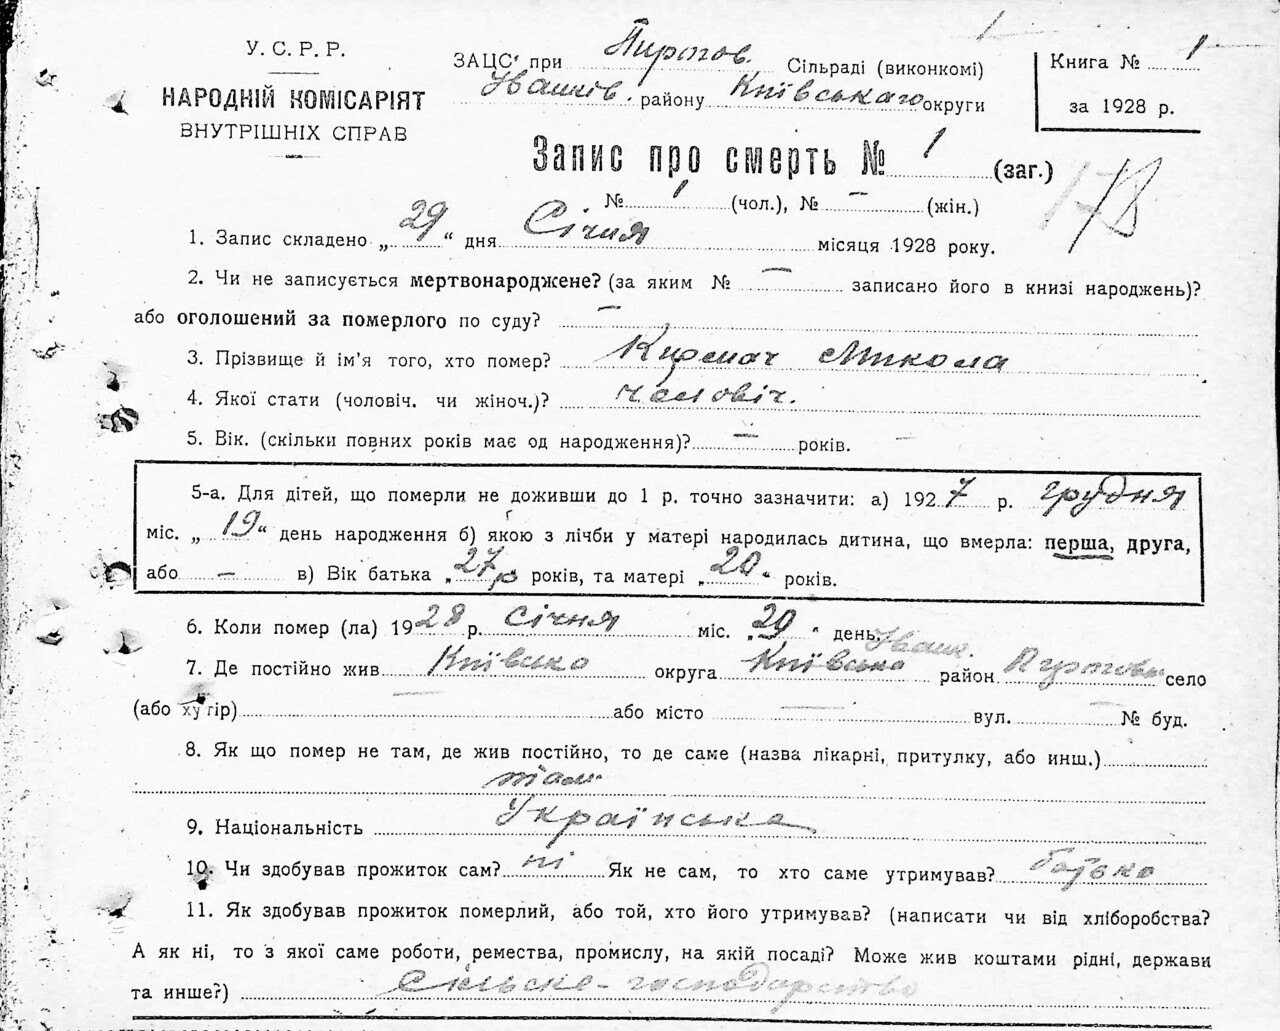 У. С. Р. Р.
НАРОДНІЙ КОМІСАРІЯТ
ВНУТРІШНІХ СПРАВ
ЗАЦС при Пиргов. Сільраді (виконкомі)
Іванків. району Київського округи
Книга № 1
за 1928 р.
Запис про смерть № 1 (заг.)
№ 1 (чол.), № — (жін.)
178
1. Запис складено „ 29 “ дня Січня місяця 1928 року.
2. Чи не записується мертвонароджене? (за яким № — записано його в книзі народжень)?
або оголошений за померлого по суду? —
3. Прізвище й ім’я того, хто помер? Микола
4. Якої стати (чоловіч. чи жіноч.)? чоловіч.
5. Вік. (скільки повних років має од народження)? — років.
5-а. Для дітей, що померли не доживши до 1 р. точно зазначити: а) 1927 р. грудня
міс. „ 19 “ день народження б) якою з лічби у матері народилась дитина, що вмерла: перша, друга,
або — в) Вік батька „ 27 “ років, та матері „ 20 “ років.
6. Коли помер (ла) 1928 р. Січня міс. „ 29 “ день.
7. Де постійно жив Київсько округа Київсько Іванк. район село
(або хутір) — або місто — вул. — № буд.
8. Як що помер не там, де жив постійно, то де саме (назва лікарні, притулку, або инш.)
там
9. Національність Українська
10. Чи здобував прожиток сам? ні Як не сам, то хто саме утримував? батько
11. Як здобував прожиток померлий, або той, хто його утримував? (написати чи від хліборобства?
А як ні, то з якої саме роботи, ремества, промислу, на якій посаді? Може жив коштами рідні, держави
та инше?) Сільске-господарство